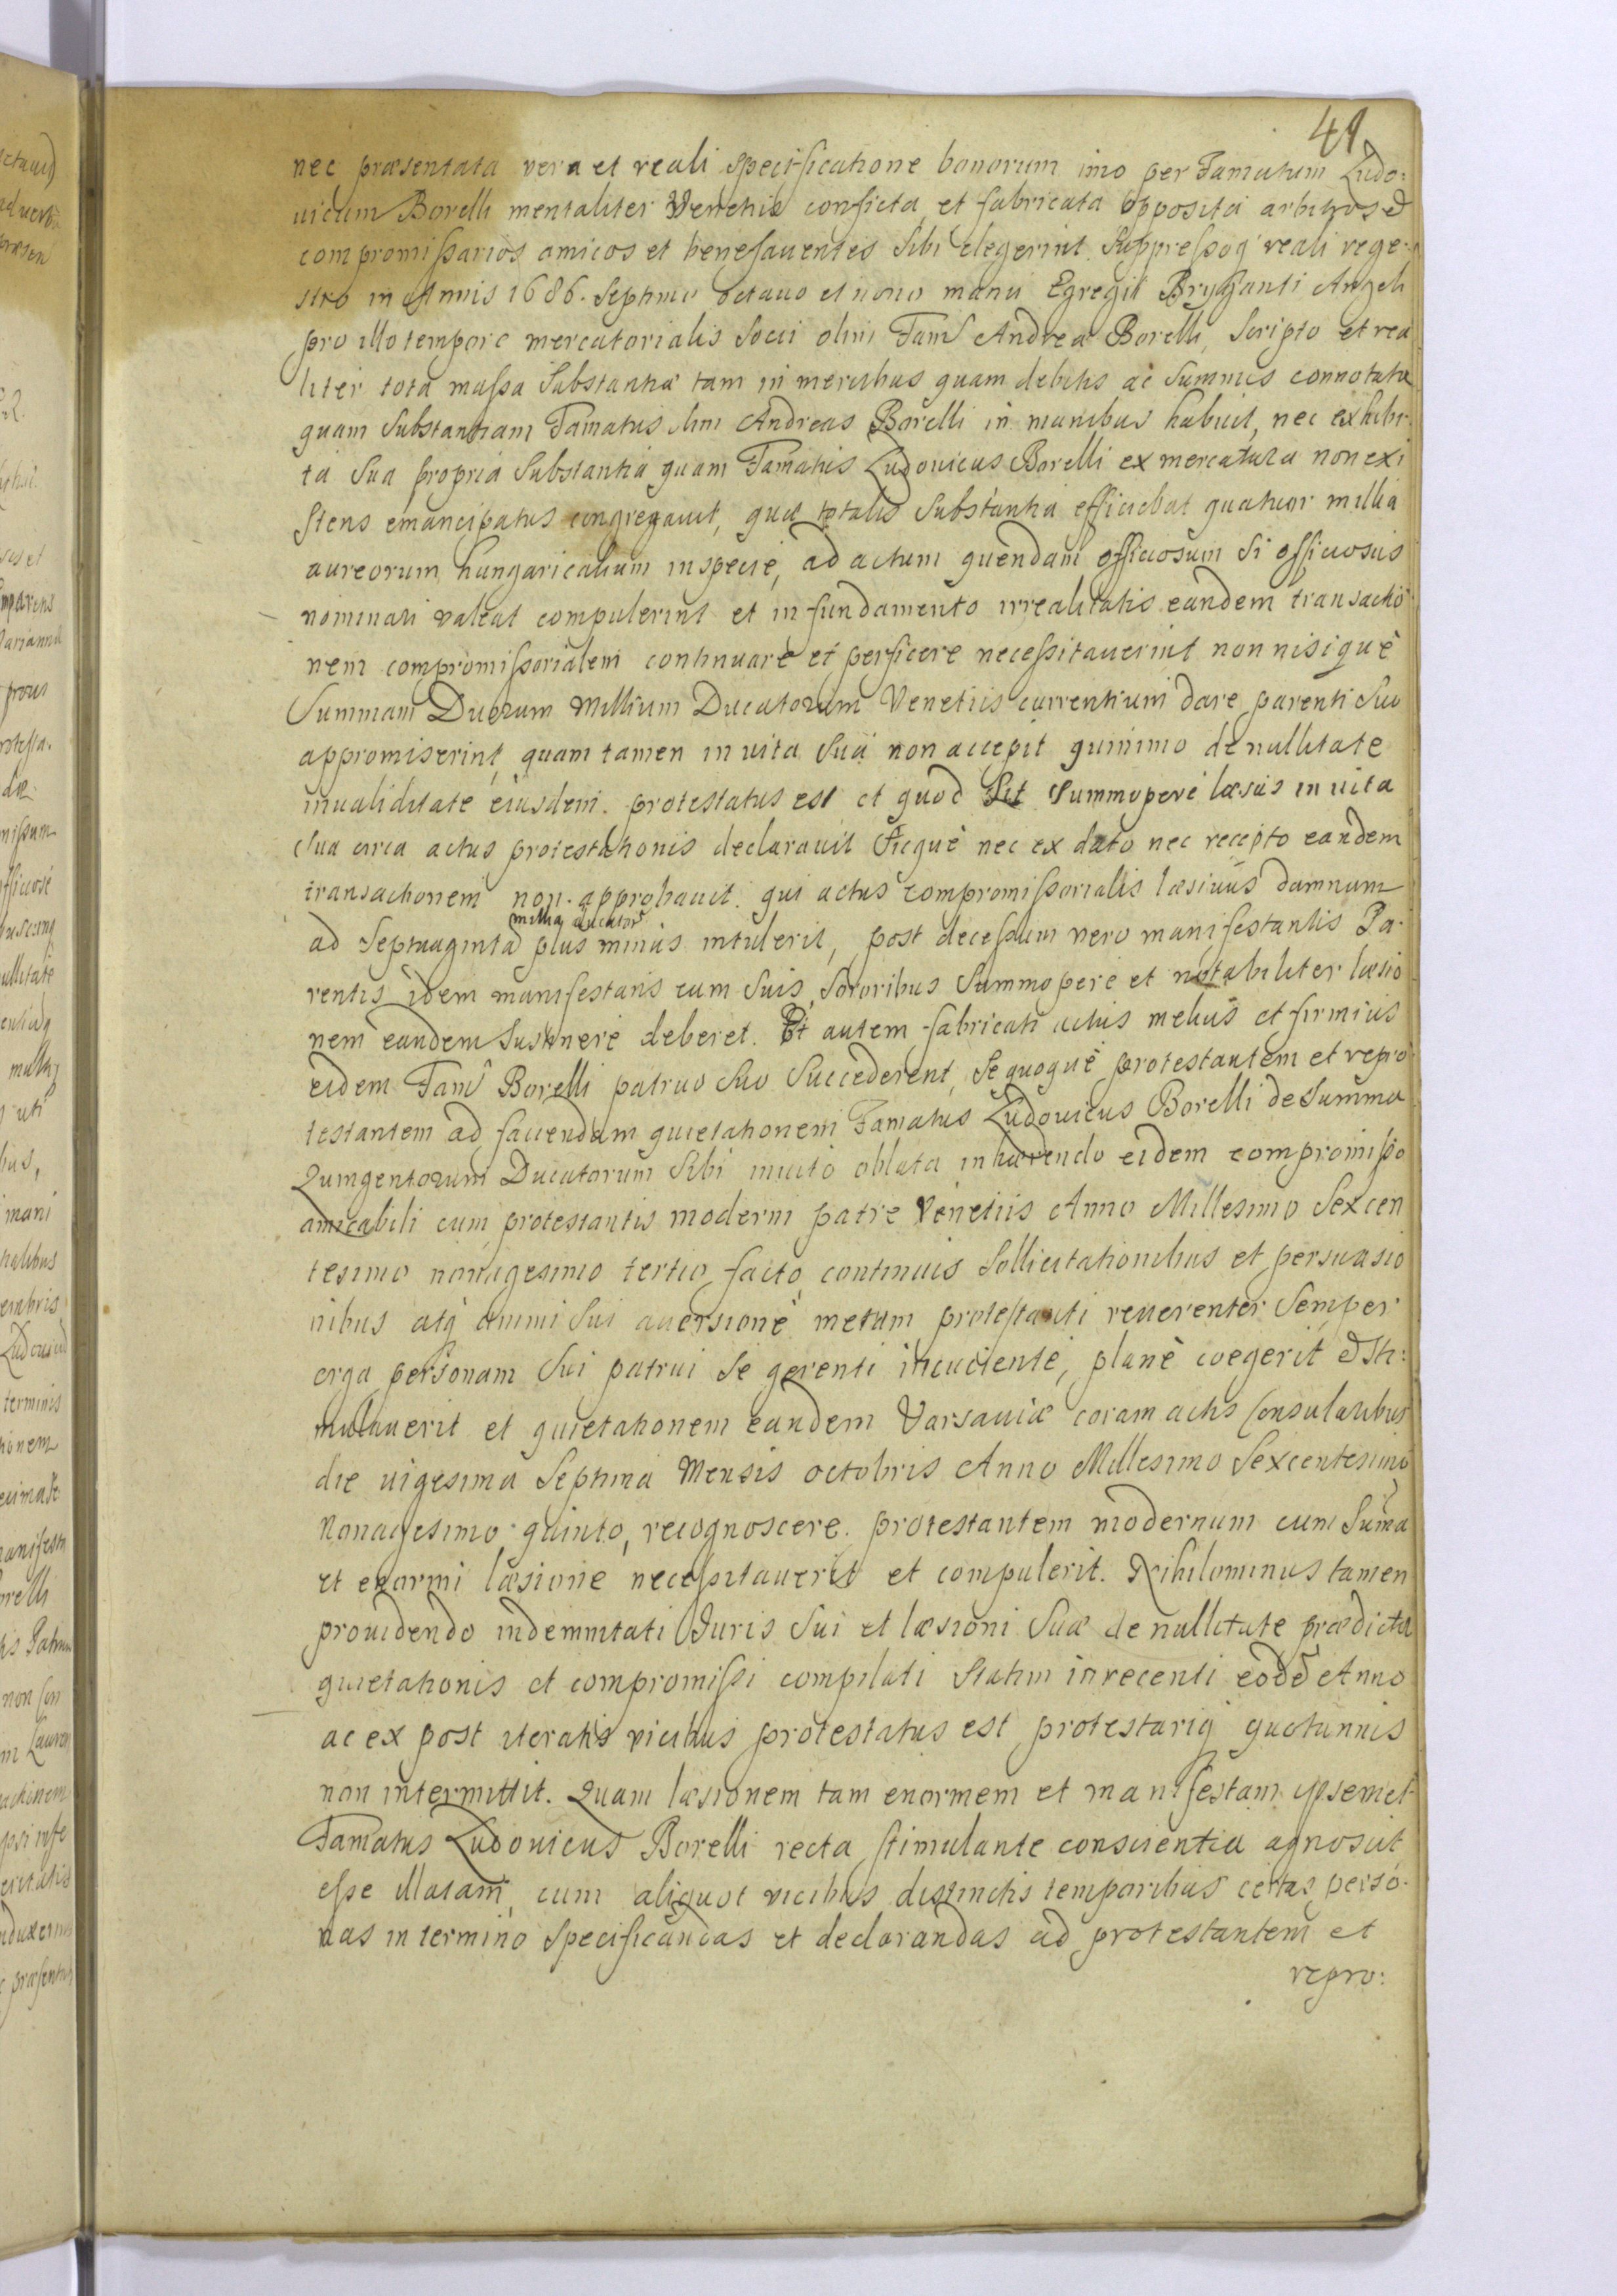 41
nec præsentata vera et reali specificatione bonorum imo per Famatum Ludo:
uicum Borelli mentaliter Venetiis conficta et fabricata opposita arbitros &
compromissarios amicos et benefauentes sibi elegerint. Suppressoq reali rege:
stro in Annis 1686. septimo octauo et nono manu Egregii Bryganti Angeli
pro illo tempore mercatorialis socii olim Fam Andreæ Borelli, scripto et rea
liter tota massa substantiæ tam in mercibus quam debitis ac summis connotata
quam substantiam Famatus olim Andreas Borelli in manibus habuit, nec exhibi:
ta sua propria substantia quam Famatus Ludouicus Borelli ex mercatura non exi
stens emancipatus congregauit, quæ totalis substantia efficiebat quatuor millia
aureorum hungaricalium in specie, ad actum quendam officiosum si officiosus
nominari valeat compulerint et in fundamento irrealitatis eandem transactio
nem compromissorialem continuare et perficere necessitauerint non nisi què
Summam Duorum Millium Ducatorum Venetiis currentium dare parenti suo
appromiserint, quam tamen in uita sua non accepit quinimo de nullitate
inualiditate eiusdem protestatus est et quod sit summopere læsus in uita
sua circa actus protestationis declarauit sicque nec ex dato nec recepto eandem
transactionem non approbauit. qui actus compromissorialis læsiuus damnum
millia ducator
ad septuaginta plus minus intulerit, post decessum vero manifestantis Pa:
rentis idem manifestans cum suis sororibus summopere et notabiliter læsio
nem eandem sustinere deberet. Ut autem fabricati actus melius et firmius
eidem Fam Borelli patruo suo succederent, se quoque protestantem et repro
testantem ad faciendam quietationem Famatus Ludouicus Borelli de summa
Quingentorum Ducatorum sibi inuito oblata inhærendo eidem compromisso
amicabili cum protestantis moderni patre Venetiis Anno Millesimo Sexcen
tesimo nonagesimo tertio facto, continuis sollicitationibus et persuasio
nibus atq animi sui auersione metum protestanti reuerenter semper
erga personam sui patrui se gerenti incuciente, plane coegerit & sti:
mulauerit et quietationem eandem Varsauiæ coram actis Consularibus
die uigesima septima Mensis octobris Anno Millesimo Sexcentesimo
Nonagesimo quinto, recognoscere protestantem modernum cum suma
et enormi læsione necessitauerit et compulerit. Nihilominus tamen
prouidendo indemnitati Juris sui et læsioni suæ de nullitate prædictæ
quietationis et compromissi compilati statim in recenti eodē Anno
ac ex post iteratis vicibus protestatus est protestariq quotannis
non intermittit. Quam læsionem tam enormem et manifestam ipsemet
Famatus Ludouicus Borelli recta stimulante conscientia agnoscit
esse illatam, cum aliquot vicibus distinctis temporibus certas perso:
nas in termino specificandas et declarandas ad protestantem et
repro: